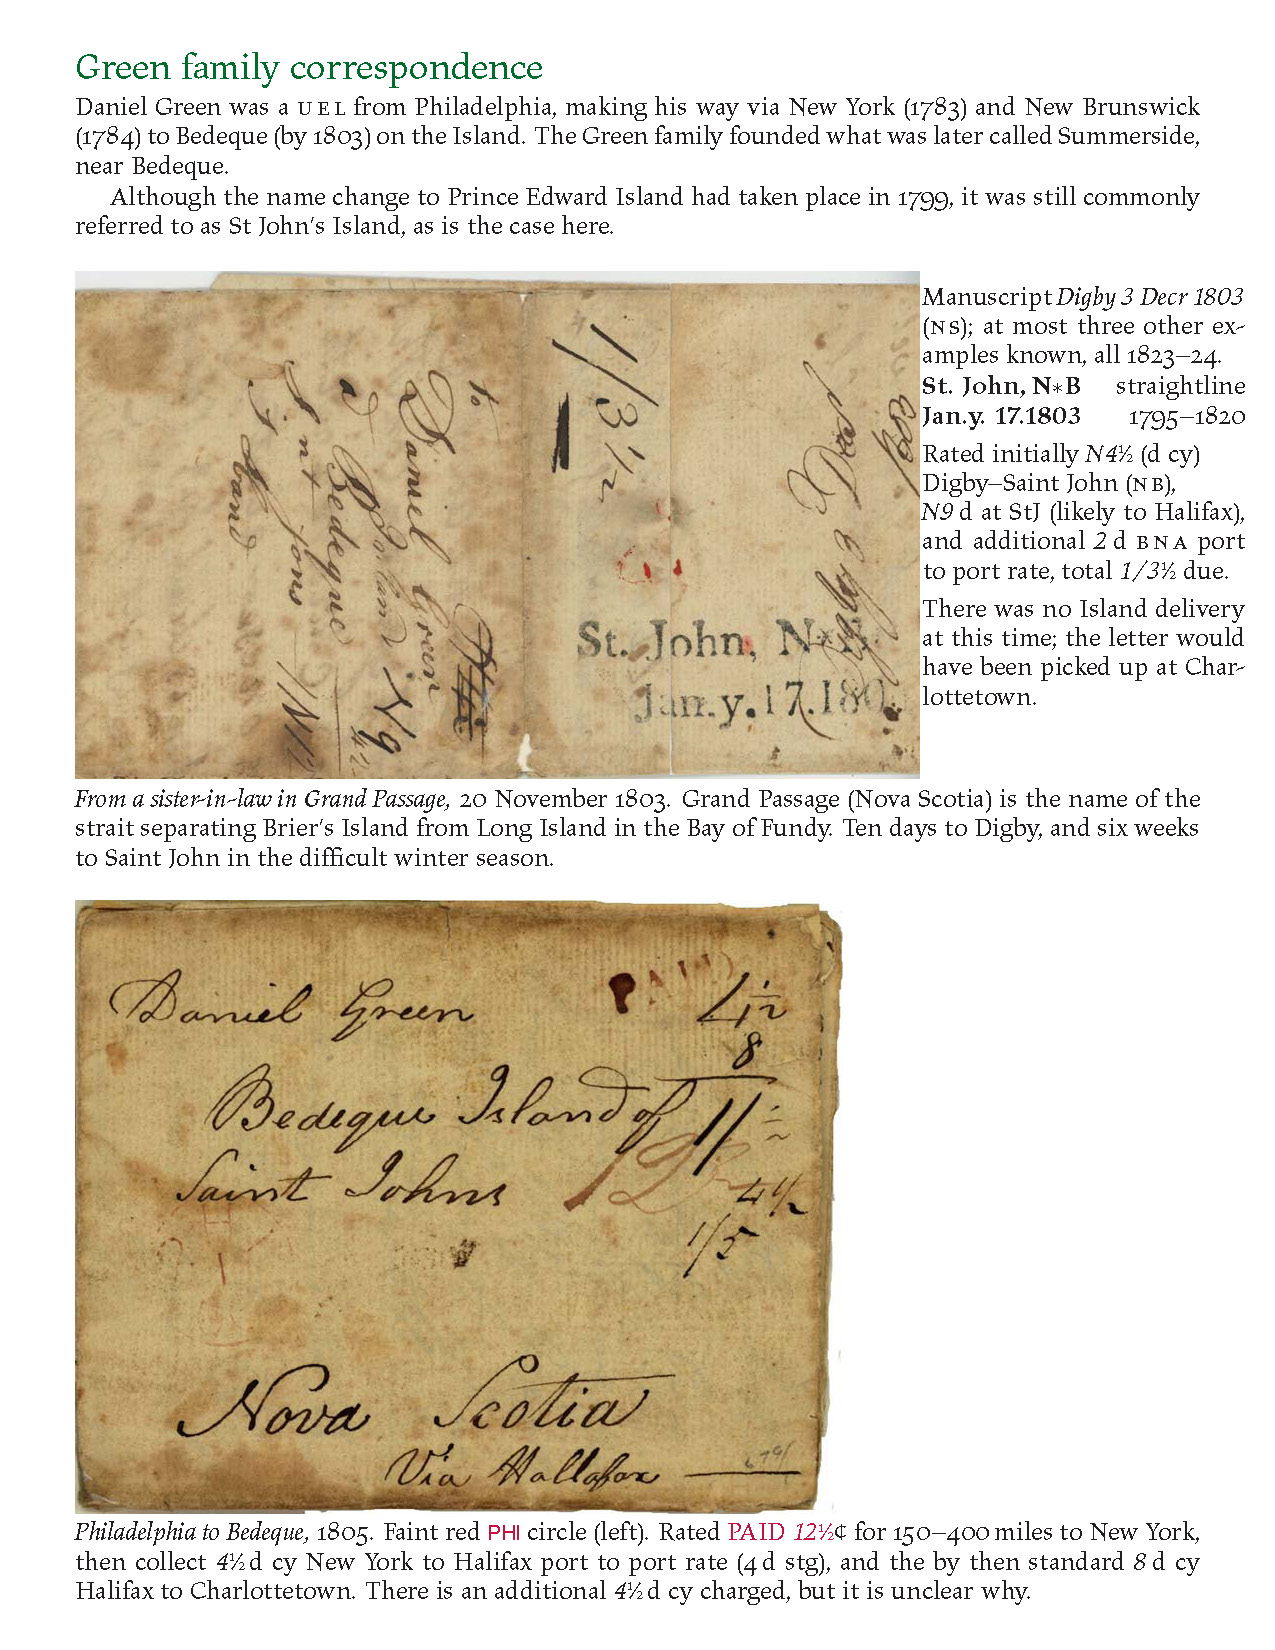 Green family correspondence
Daniel Green was a UEL from Philadelphia, making his way via New York (1783) and New Brunswick
(1784) to Bedeque (by 1803) on the Island. The Green family founded what was later called Summerside,
near Bedeque.
Although the name change to Prince Edward Island had taken place in 1799, it was still commonly
referred to as St John's Island, as is the case here.
to
Daniel Green
Bedeque
1/3½
Digby 3 Decr
1803
St. John, N*B
Jan.y.17.180
N9
4½
Manuscript Digby 3 Decr 1803
(NS); at most three other ex-
amples known, all 1823–24.
St. John, N*B straightline
Jan.y. 17.1803 1795–1820
Rated initially N4½ (d cy)
Digby–Saint John (NB),
N9 d at StJ (likely to Halifax),
and additional 2 d BNA port
to port rate, total 1/3½ due.
There was no Island delivery
at this time; the letter would
have been picked up at Char-
lottetown.
From a sister-in-law in Grand Passage, 20 November 1803. Grand Passage (Nova Scotia) is the name of the
strait separating Brier's Island from Long Island in the Bay of Fundy. Ten days to Digby, and six weeks
to Saint John in the difficult winter season.
PAID 4½
Daniel Green
8
Bedeque Island of
Saint Johns
4½
1/5
Nova Scotia
Via Hallafax
Philadelphia to Bedeque, 1805. Faint red PHI circle (left). Rated PAID 12½¢ for 150–400 miles to New York,
then collect 4½ d cy New York to Halifax port to port rate (4 d stg), and the by then standard 8 d cy
Halifax to Charlottetown. There is an additional 4½ d cy charged, but it is unclear why.